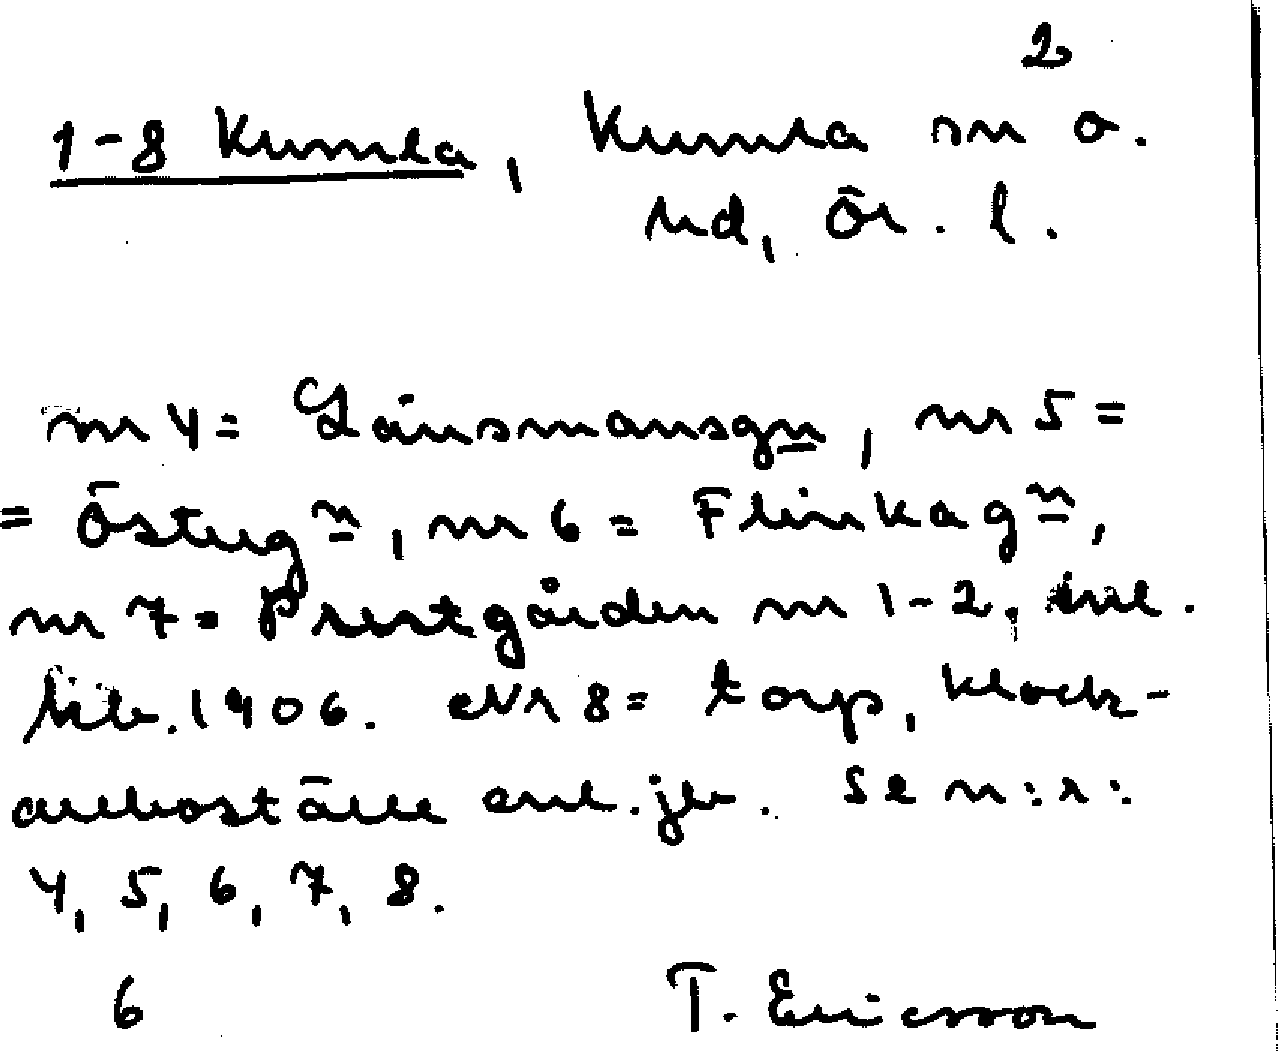 2
1-8 Kumla, Kumla sn o.
hd, Ör. l.
nr 4 = Länsmansgn, nr 5 =
= Österg<sup>n</sup>, nr 6 = Flinkag<sup>n</sup>,
nr 7 = Prestgården nr 1-2, enl.
1906. Nr 8 = torp, klock-
areboställe enl. jb. Se n:r:
4, 5, 6, 7, 8.
6 T. Ericsson